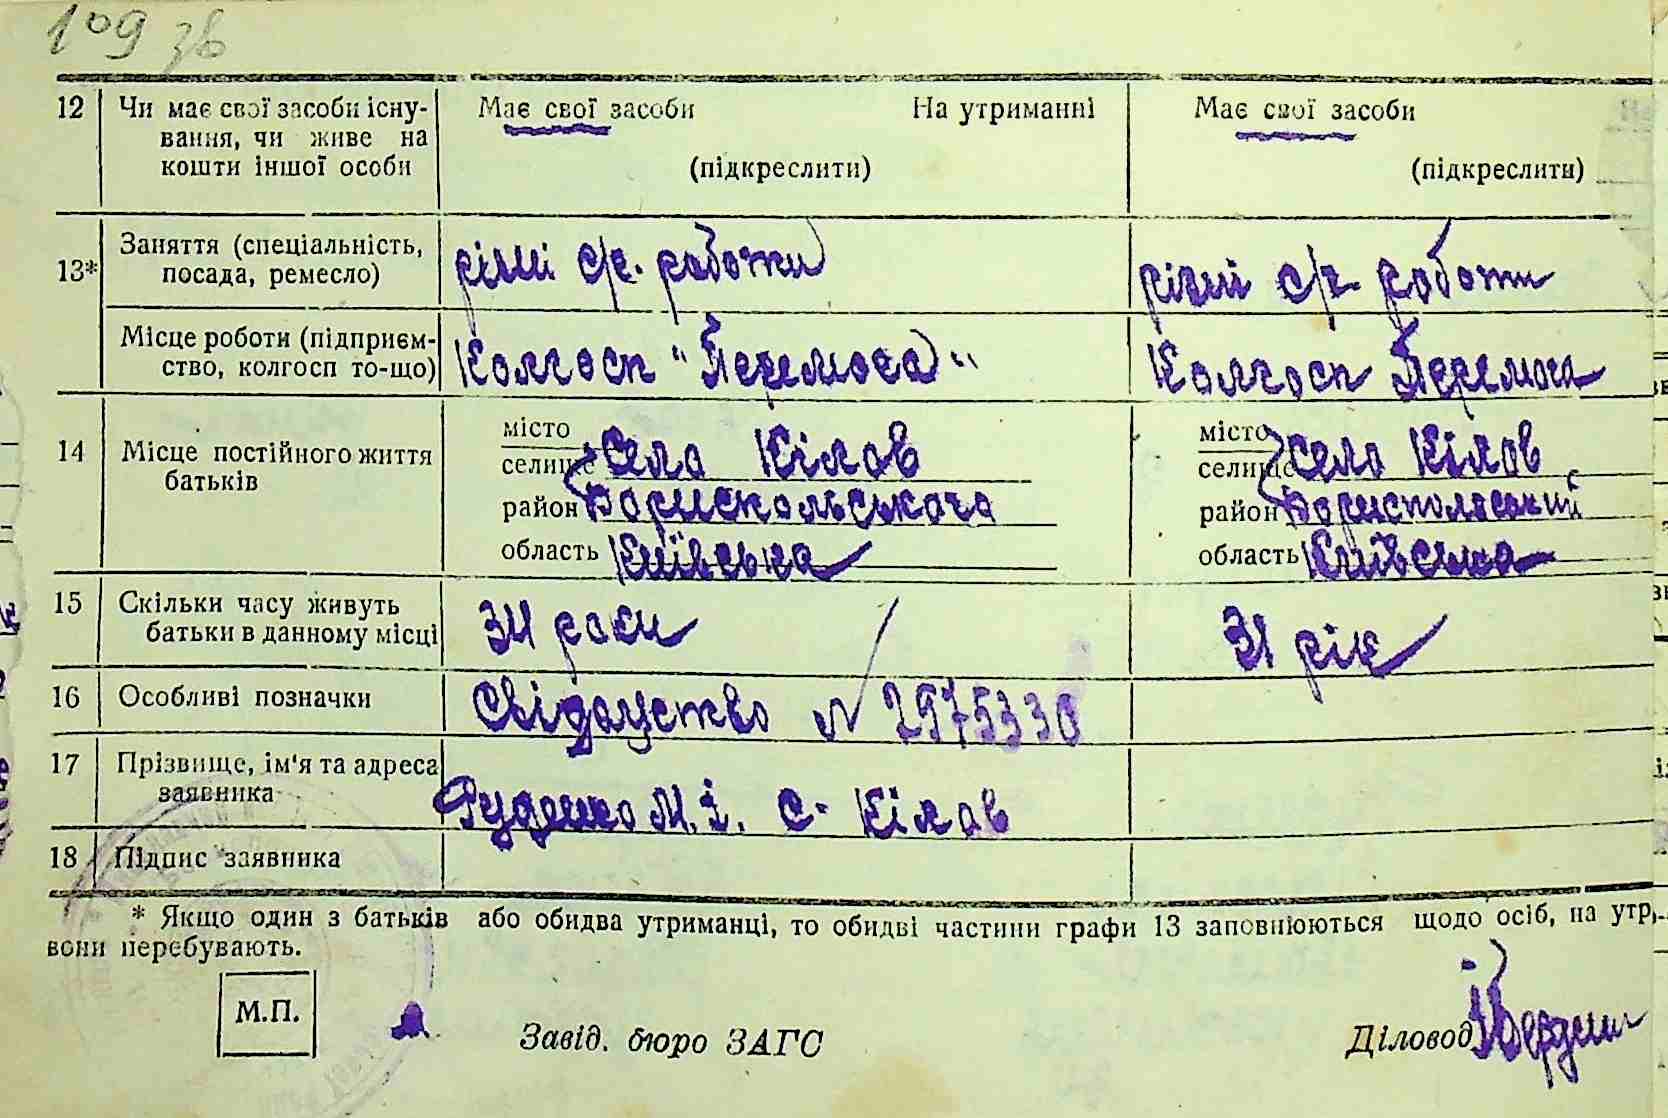 109 зв
12 Чи має свої засоби існу- Має свої засоби На утриманні Має свої засоби
вання, чи живе на
кошти іншої особи (підкреслити) (підкреслити)
13* Заняття (спеціальність, різні с/г. роботи різні с/г роботи
посада, ремесло)
Місце роботи (підприєм- Колгосп "Перемога" Колгосп Перемога
ство, колгосп то-що)
14 Місце постійного життя місто місто
батьків селище Село Кілов селище Село Кілов
район Бориспольського район Бориспольський
область Київська область Київська
15 Скільки часу живуть 34 роки 31 рік
батьки в данному місці
16 Особливі позначки Свідоцтво N 2975330
17 Прізвище, ім'я та адреса
заявника Руденко М. І. с. Кілов
18 Підпис заявника
* Якщо один з батьків або обидва утриманці, то обидві частини графи 13 заповнюються щодо осіб, на утр
вони перебувають.
М.П.
Завід. бюро ЗАГС Діловод